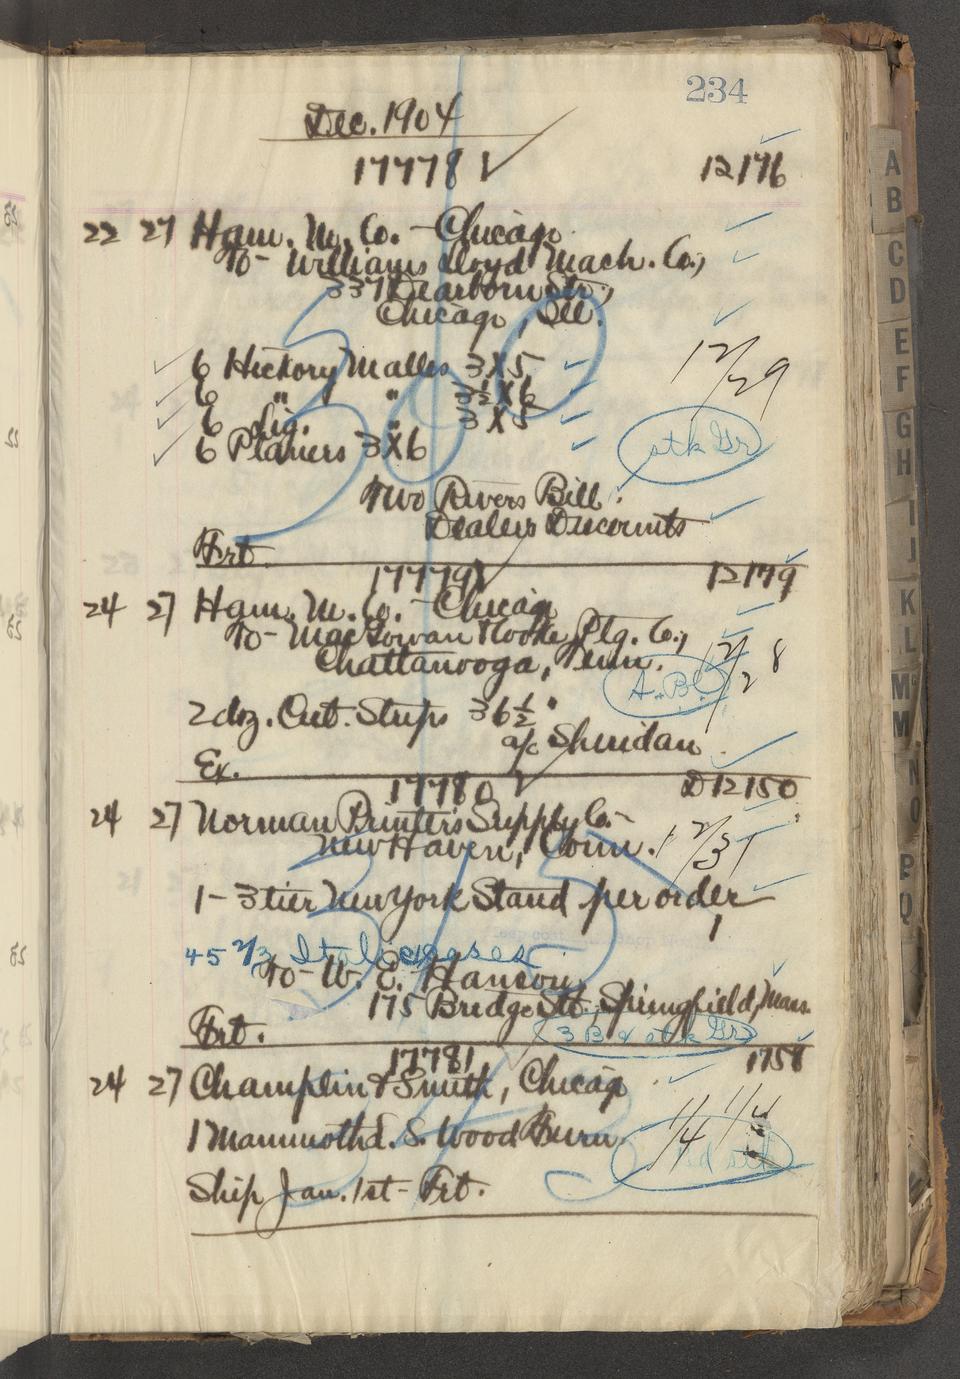 234
Dec. 1904
17778 12176
22 27 Ham. M. Co. - Chicago
To- Williams Lloyd Mach. Co.,
337 Dearborn Str.,
Chicago, Ill.
6 Hickory Malles 3X5
12/29
6 " " 3½X6
6 Lig. " 3X5
6 Planers 3X6
stk Gr
Two Rivers Bill.
Dealers Discounts
Frt.
17779 12179
24 27 Ham. M. Co. - Chicago
To- MacGowan Cooke Ptg. Co.,
Chattanooga, Tenn. 12/28
A.B.
2 doz. Cut. Strips 36½"
a/c Sheridan
Ex.
17780 D12150
24 27 Norman Printers Supply Co. -
New Haven, Conn. 12/31
1- 3 tier New York Stand per order
45 2/3 Ital cases
To- W. E. Hanson,
175 Bridge St., Springfield, Mass.
Frt. 3 B & stk Gr
17781 1758
24 27 Champlin & Smith, Chicago
1/4 1/4
1 Mammoth d. S. Wood Furn.
stk
Ship Jan. 1st - Frt.
A
B
C
D
E
F
G
H
I
J
K
L
M
M
N
O
P
Q